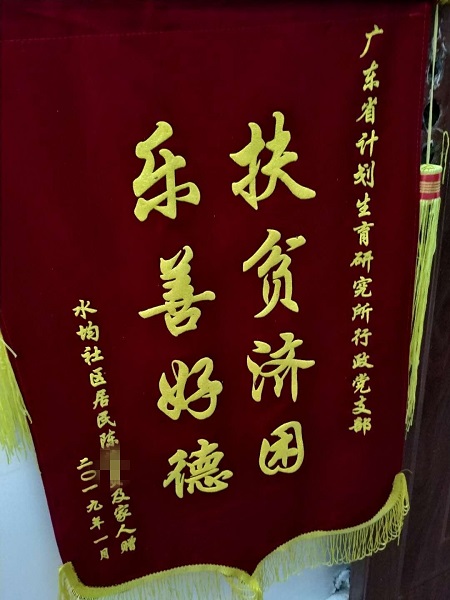 广东省计划生育研究所行政党支部
扶贫济困
乐善好德
水均社区居民陈及家人赠
二〇一九年一月